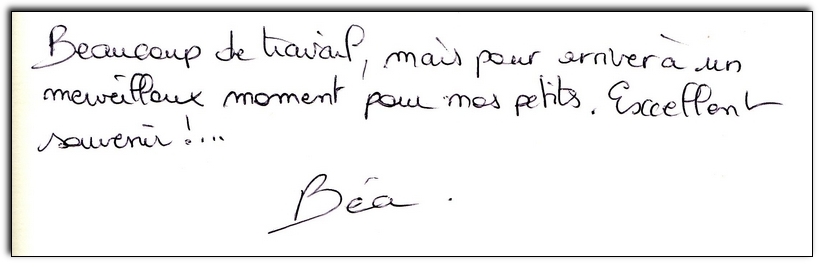 Beaucoup de travail, mais pour arriver à un
merveilleux moment pour nos petits. Excellent
souvenir !...
Béa.